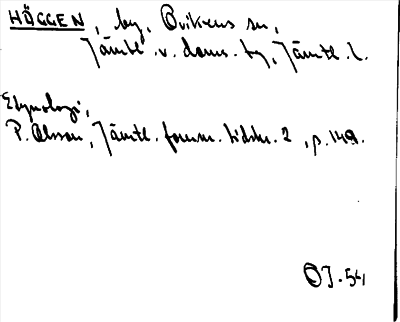 HÖGGEN, by, Ovikens sn,
Jämtl. v. doms. tg, Jämtl. l.
Etymologi,
P. Olsson, Jämtl. fornm. tidskr. 2, p. 149.
OJ. 54